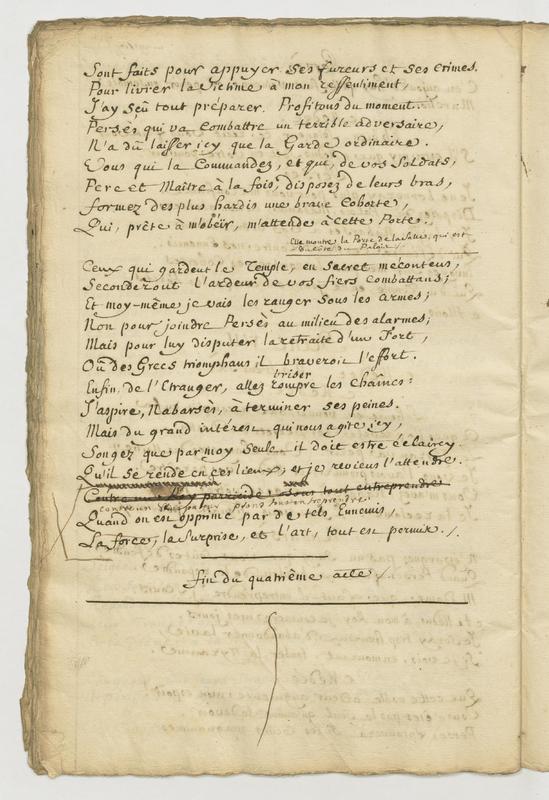 Sont faits pour appuyer ses fureurs et ses crimes.
Pour livrer la victime à mon ressentiment,
J'ay seû tout préparer. Profitons du moment.
Persès qui va combattre un terrible adversaire,
N'a dû laisser icy que la Garde ordinaire.
Vous qui la Commandez, et qui, de vos Soldats,
Pere et Maître à la fois, disposez de leurs bras,
formez des plus hardis une brave Cohorte,
Qui, prête à m'obéir, m'attende à cette Porte.
Elle montre la Porte de la Salle, qui est
du côté du Palais.
Ceux qui gardent le Temple, en secret mécontens,
Seconderont l'ardeur de vos fiers Combattans;
Et moy-même je vais les ranger sous les armes;
Non pour joindre Persès au milieu des alarmes;
Mais pour luy disputer la retraite d'un Fort,
Où des Grecs triomphans il braveroit l'effort.
briser
Enfin, de l'Etranger, allez rompre les chaînes:
J'aspire, Nabarsès, à terminer ses peines.
Mais du grand intérest qui nous agite icy,
Songez que par moy seule il doit estre éclaircy.
Qu'il se rende en ces lieux; et je reviens l'attendre.
Contre un Roy parricide; tout entreprendre
contre un Usurpateur on entreprendre.
Quand on est opprimé par de tels Ennemis,
La force, la surprise, et l'art, tout est permis.
fin du quatrième acte